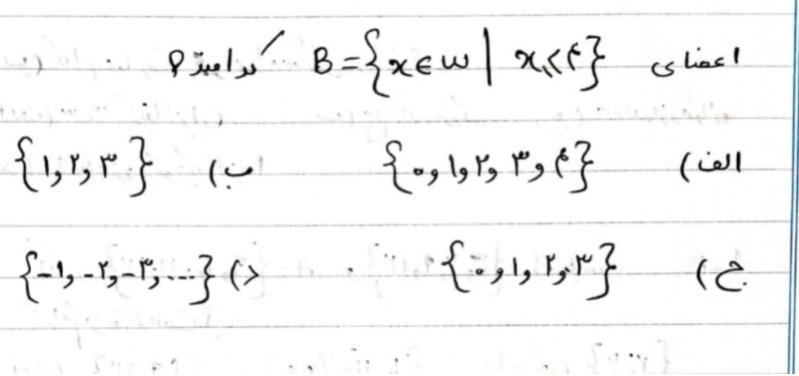 اعضای B = {x ∈ w | x ≤ ۴} کدامیتز؟
الف) {۰ و ۱ و ۲ و ۳ و ۴} ب) {۱ و ۲ و ۳}
ج) {۰ و ۱ و ۲ و ۳} د) {-۱ و -۲ و -۳ و ...}